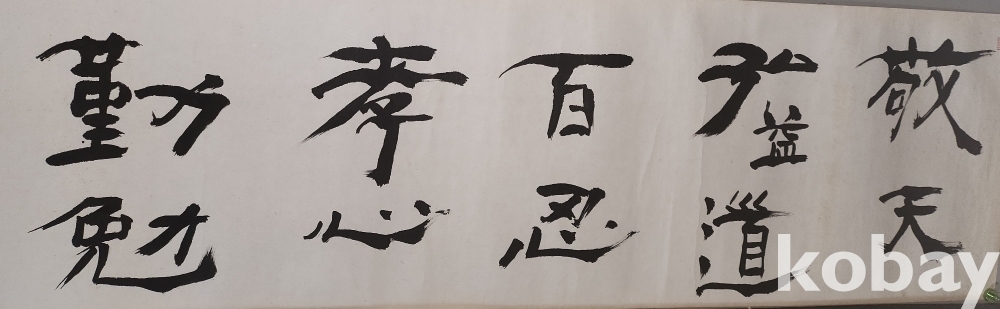 敬天
弘益道
百忍
孝心
勤勉
kobay